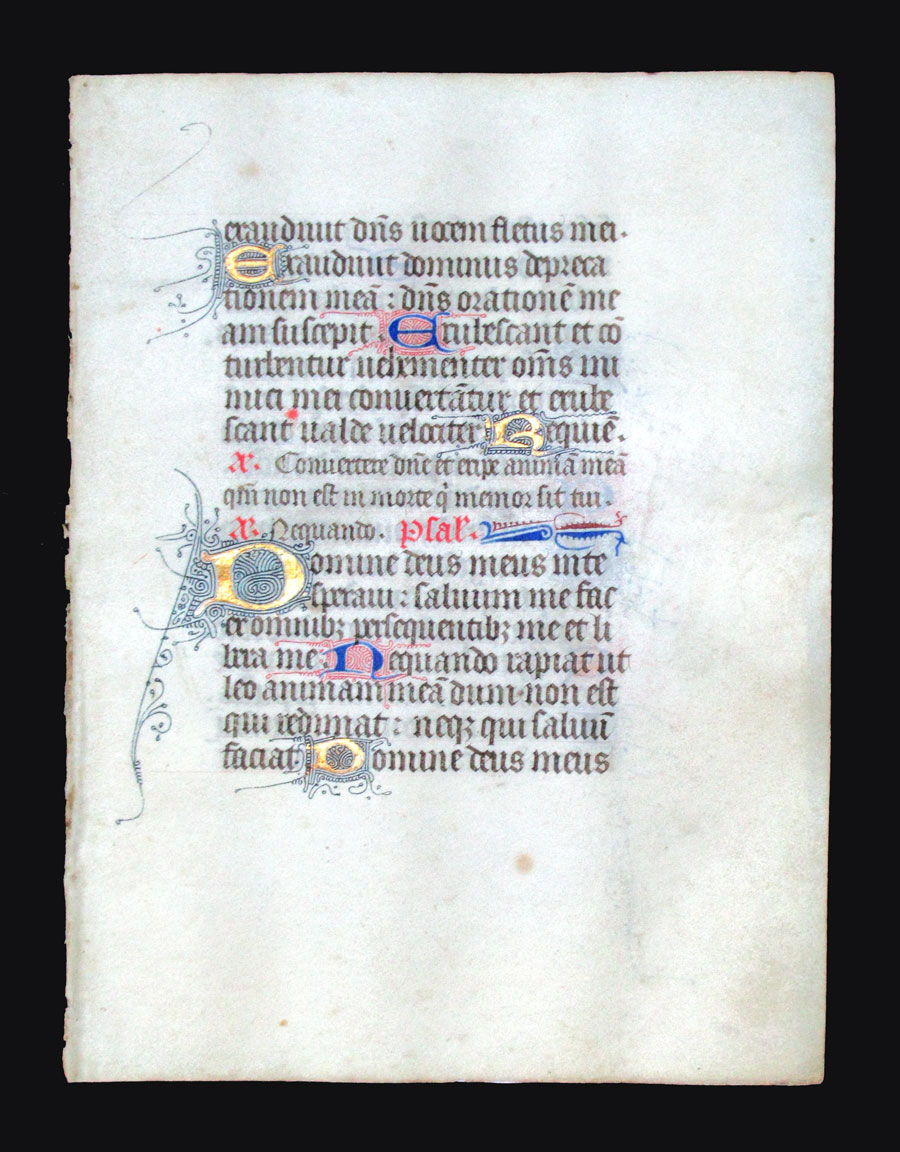 exaudiuit dn̄s uocem fletus mei.
Exaudiuit dominus depreca
tionem meā : dn̄s orationē me
am suscepit Erubescant et cō
turbentur uehementer om̄s ini
mici mei conuertātur et erube
scant ualde uelociter Requiē.
A. Conuertere dn̄e et eripe animā meā
qm̄ non est in morte q̇ memor sit tui.
A. Nequando. Psal'.
Domine deus meus in te
speraui : saluum me fac
ex omnibꝫ persequentibꝫ me et li
bera me Nequando rapiat ut
leo animam meā dum non est
qui redimat : neqꝫ qui saluū
faciat Domine deus meus